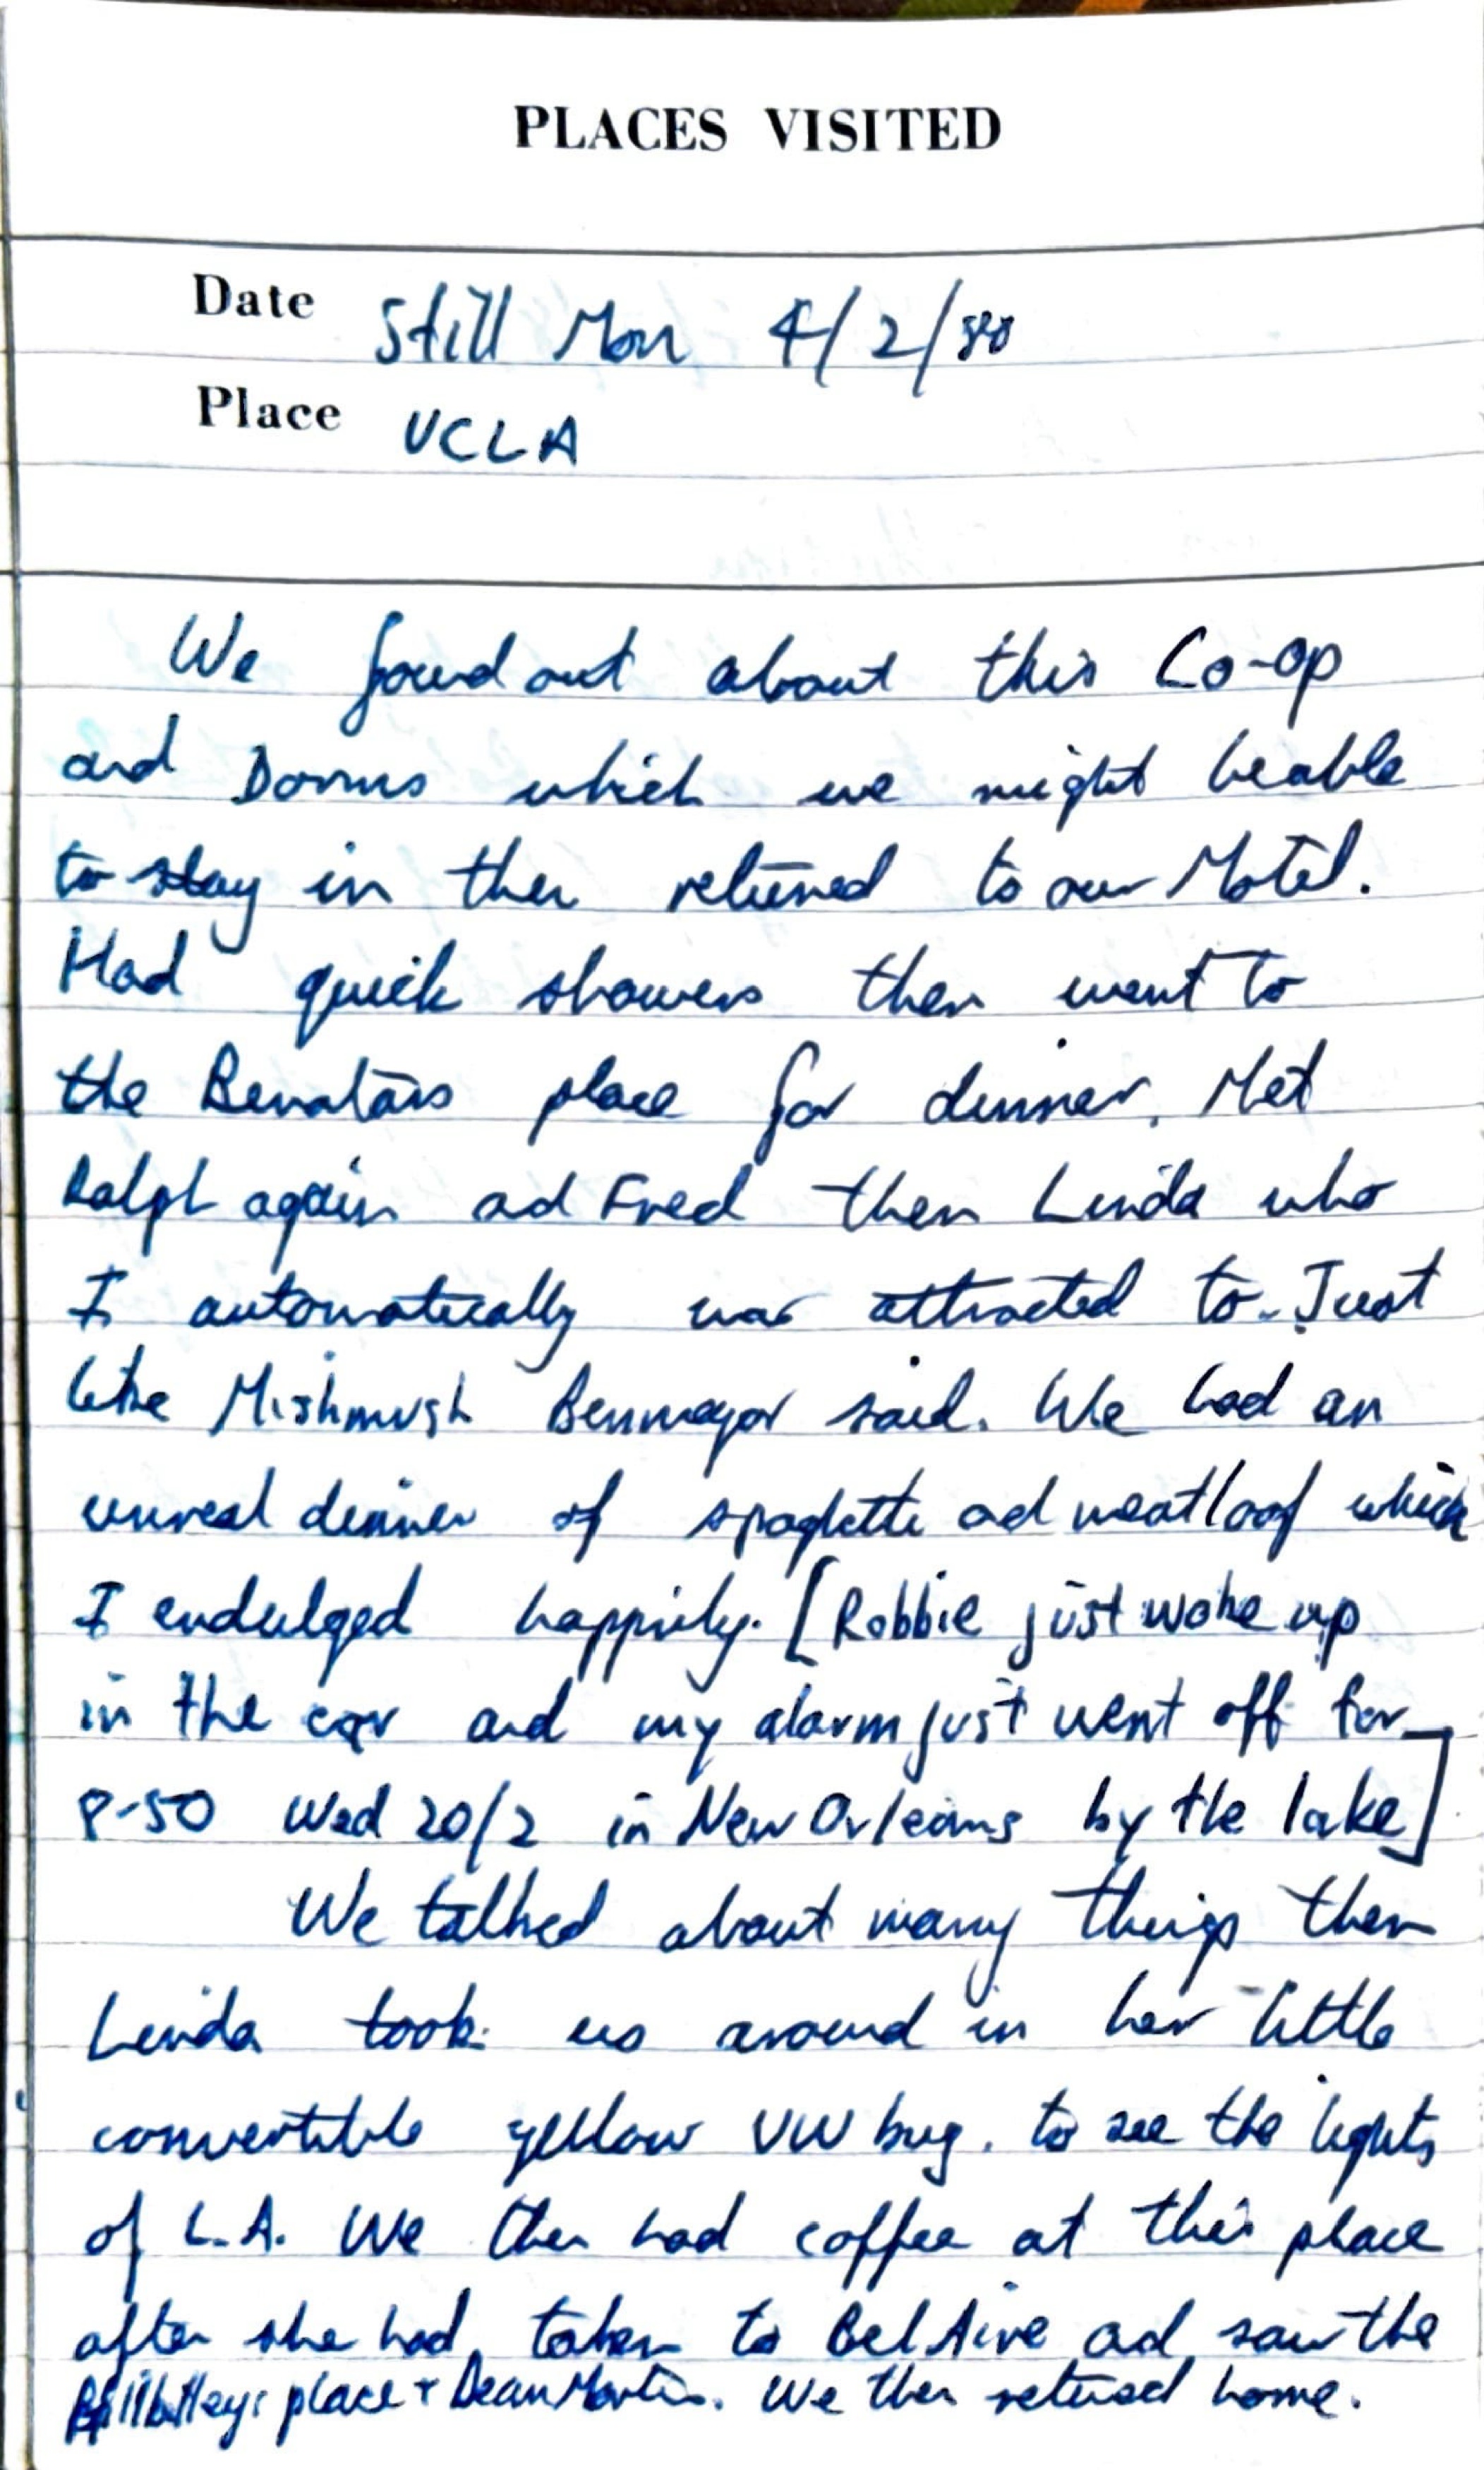 PLACES VISITED
Date Still Mon 4/2/80
Place UCLA
We found out about this Co-op
and Dorms which we might beable
to stay in then returned to our Motel.
Had quick showers then went to
the Benatars place for dinner. Met
Ralph again ad Fred then Linda who
I automatically was attracted to. Just
like Mishmush Benmayor said. We had an
unreal dinner of spaghetti ad meatloaf which
I endulged happily. [Robbie just woke up
in the car and my alarm just went off for
8-50 Wed 20/2 in New Orleans by the lake]
We talked about many things then
Linda took us around in her little
convertible yellow VW bug. to see the lights
of L.A. We then had coffee at this place
after she had taken to Bel Aire ad saw the
Billbilleys place + Dean Martins. We then returned home.